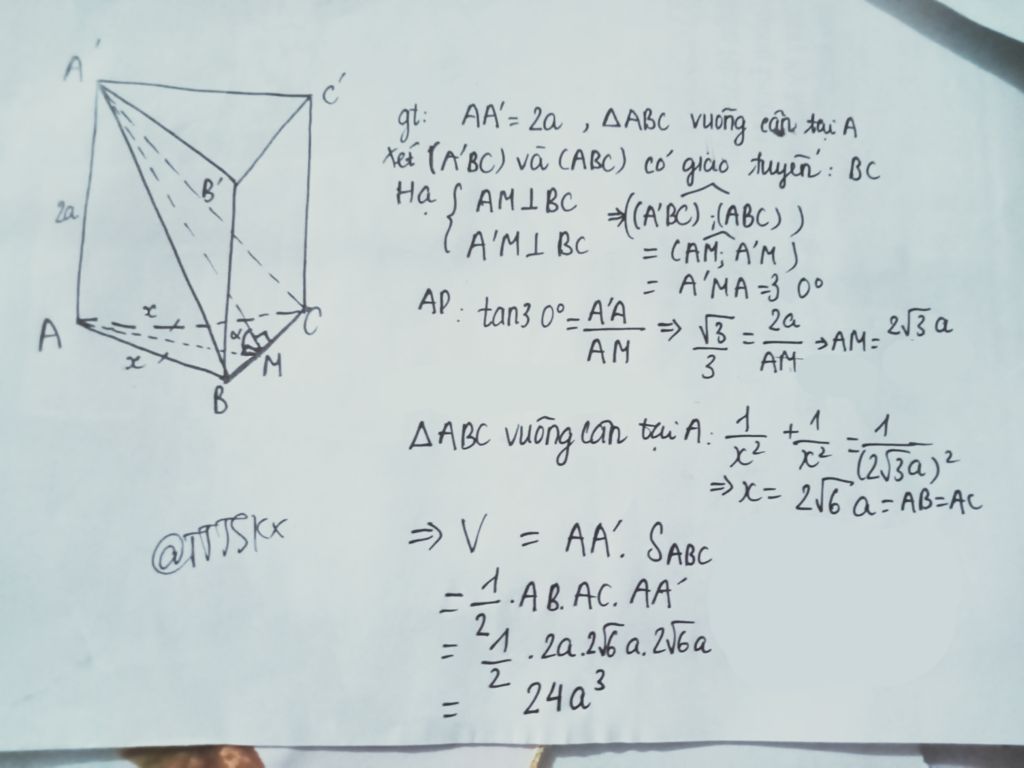 A'
C'
B'
2a
A
x
x
α
C
M
B
gt: AA' = 2a , ΔABC vuông cân tại A
Xét (A'BC) và (ABC) có giao tuyến: BC
Hạ { AM⊥BC ⇒ ((A'BC) ; (ABC))
A'M⊥BC = (AM; A'M)
= A'MA = 30°
AD: tan30° = A'A/AM ⇒ √3/3 = 2a/AM → AM = 2√3 a
ΔABC vuông cân tại A: 1/x² + 1/x² = 1/(2√3a)²
⇒ x = 2√6 a = AB = AC
⇒ V = AA'. S_ABC
= 1/2 . AB. AC. AA'
= 1/2 . 2a. 2√6 a. 2√6 a
= 24a³